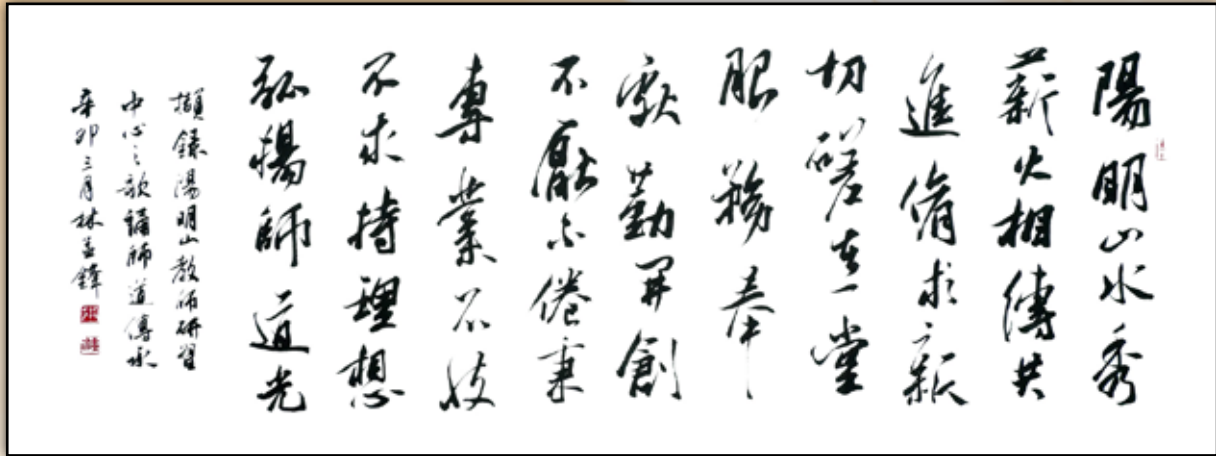 陽明山水秀
薪火相傳共
進脩求新
切磋在一堂
服務奉
獻勤開創
不厭不倦秉
專業不忮
不求持理想
弘揚師道光
擷錄陽明山教師研習
中心之歌誦師道傳承
辛卯三月林